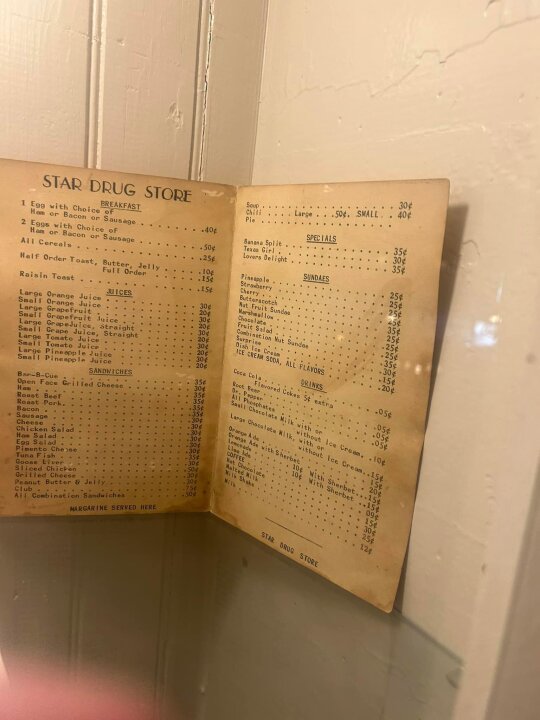 STAR DRUG STORE
BREAKFAST
1 Egg with Choice of
Ham or Bacon or Sausage .40¢
2 Eggs with Choice of
Ham or Bacon or Sausage .50¢
All Cereals .25¢
Half Order Toast, Butter, Jelly .10¢
Full Order .15¢
Raisin Toast .15¢
JUICES
Large Orange Juice 30¢
Small Orange Juice 20¢
Large Grapefruit 30¢
Small Grapefruit Juice 20¢
Large GrapeJuice, straight 30¢
Small Grape Juice, Straight 20¢
Large Tomato Juice 30¢
Small Tomato Juice 20¢
Large Pineapple Juice 30¢
Small Pineapple Juice 20¢
SANDWICHES
Bar-B-Cue 35¢
Open Face Grilled Cheese
Ham
Roast Beef 35¢
Roast Pork 35¢
Bacon
Sausage
Cheese
Chicken Salad
Ham Salad
Egg Salad
Pimento Cheese
Tuna Fish
Goose Liver
Sliced Chicken
Grilled Cheese
Peanut Butter & Jelly
Club
All Combination Sandwiches
MARGARINE SERVED HERE
Soup 30¢
Chili Large .50¢, SMALL 40¢
Pie
SPECIALS
Banana Split 35¢
Texas Girl 30¢
Lovers Delight 35¢
SUNDAES
Pineapple 25¢
Strawberry 25¢
Cherry 25¢
Butterscotch
Nut Fruit Sundae
Marshmallow
Chocolate
Fruit Salad
Combination Nut Sundae
Surprise
Dish Ice Cream .15¢
ICE CREAM SODA, ALL FLAVORS .20¢
DRINKS
Coca Cola .05¢
Flavored Cokes 5¢ extra
Root Beer .05¢
Dr. Pepper .05¢
All Phosphates .05¢
Small Chocolate Milk with or
without Ice Cream. .10¢
Large Chocolate Milk, with or
without Ice Cream .15¢
Orange Ade
Orange Ade with Sherbet
Lemonade 10¢ With Sherbet
Lime Ade 10¢ With Sherbet
COFFEE
Hot Chocolate
Malted Milk
Milk Shake
Milk 12¢
STAR DRUG STORE